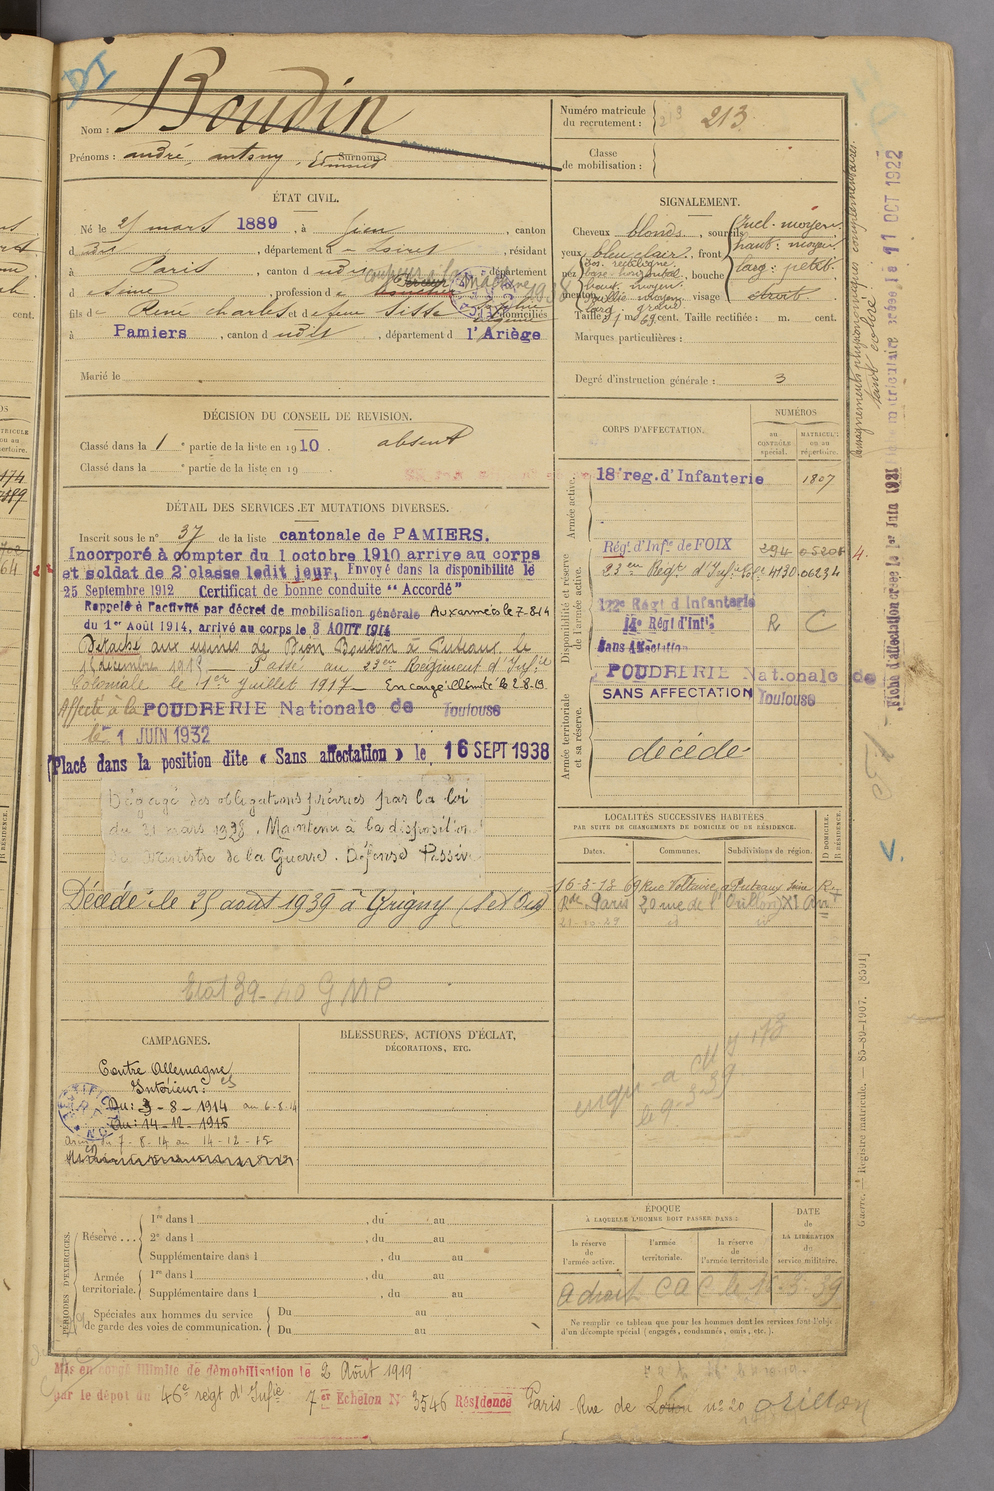 Boudin
Nom :
Prénoms : andré, antony, Edmond Surnoms
Numéro matricule du recrutement : 213
Classe de mobilisation :
ÉTAT CIVIL.
Né le 25 mars 1889, à Gien, canton
d udit, département d u Loiret, résidant
à Paris, canton d udit, département
d e Seine, profession d e
fils d e René Charles et d e feue domiciliés
à Pamiers, canton d udit, département d l'Ariège
Marié le
SIGNALEMENT.
Cheveux blonds, sourcils
yeux bleu clair, front
nez, bouche
menton, visage étroit.
Taille : 1 m. 69 cent. Taille rectifiée : m. cent.
Marques particulières :
Degré d'instruction générale : 3
DÉCISION DU CONSEIL DE REVISION.
Classé dans la 1e partie de la liste en 1910. absent
Classé dans la e partie de la liste en 19
CORPS D'AFFECTATION.
NUMÉROS
au CONTRÔLE spécial.
MATRICULE ou au répertoire.
Armée active.
18e reg. d'Infanterie 1807
Disponibilité et réserve de l'armée active.
Régt d'Infie de FOIX 294 05208
23en Regt d'Infie Cole 4130 06234
122e Régt d'Infanterie
14e Régt d'Infie R C
Sans Affectation
Armée territoriale et sa réserve.
POUDRERIE Nationale de
SANS AFFECTATION Toulouse
décédé
DÉTAIL DES SERVICES ET MUTATIONS DIVERSES.
Inscrit sous le n° 37 de la liste cantonale de PAMIERS.
Incorporé à compter du 1 octobre 1910 arrive au corps
et soldat de 2e classe ledit jour, Envoyé dans la disponibilité le
25 Septembre 1912 Certificat de bonne conduite "Accordé"
Rappelé à l'activité par décret de mobilisation générale Aux armées le 7-8-14
du 1er Août 1914, arrivé au corps le 3 AOUT 1914
Détaché aux usines de Dion Bouton à Puteaux le
15 décembre 1915 — Passé au 23en Régiment d'Infie
Coloniale le 1er juillet 1917 — En congé illimité le 2.8.19.
Affecté à la POUDRERIE Nationale de Toulouse
le 1 JUIN 1932
Placé dans la position dite « Sans affectation » le 16 SEPT 1938
Dégagé des obligations prévues par la loi
du 31 mars 1928. Maintenu à la disposition
du Ministre de la Guerre. Défense Passive
Décédé le 25 août 1939 à Grigny (S et Oise)
Etat 39-40 GMP
LOCALITÉS SUCCESSIVES HABITÉES
PAR SUITE DE CHANGEMENTS DE DOMICILE OU DE RÉSIDENCE.
Dates. Communes. Subdivisions de région. D DOMICILE. R RÉSIDENCE.
16-3-13 69 Rue Voltaire à Puteaux Seine
Paris 20 rue de l'Orillon XI Arrt
CAMPAGNES.
Contre Allemagne
Intérieur :
Du : 3-8-1914 au 6-8-14
Au : 14-12-1915
7-8-14 au 14-12-15
BLESSURES, ACTIONS D'ÉCLAT,
DÉCORATIONS, ETC.
le 9-3-39
PÉRIODES D'EXERCICES.
Réserve ... 1re dans l , du au
2e dans l , du au
Supplémentaire dans l , du au
Armée territoriale. 1re dans l , du au
Supplémentaire dans l , du au
Spéciales aux hommes du service de garde des voies de communication. Du au
Du au
ÉPOQUE
À LAQUELLE L'HOMME DOIT PASSER DANS :
la réserve de l'armée active.
l'armée territoriale.
la réserve de l'armée territoriale
DATE de LA LIBÉRATION du service militaire.
A droit C A C le 16-3-39
Ne remplir ce tableau que pour les hommes dont les services font l'objet
d'un décompte spécial (engagés, condamnés, omis, etc.).
Mis en congé illimité de démobilisation le 2 Août 1919
par le dépôt du 46e regt d'Infie 7er Echelon N° 3546 Résidence Paris Rue de n° 20 Orillon
Renseignements physionomiques complémentaires.
Fiche d'affectation créée le 1er Juin 1921
matriculaire créée le 11 OCT 1922
Guerre. — Registre matricule. — 85-89-1907. [8591]